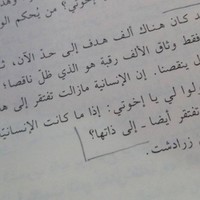 إخوتي؟ من يُحكم الو
د كان هناك ألف هدف إلى حدّ الآن، ث
فقط وثاق الألف رقبة هو الذي ظلّ ناقصا؛
ل ينقصنا. إن الإنسانية مازالت تفتقر إلى ه
ولوا لي يا إخوتي: إذا ما كانت الإنسانية
تفتقر أيضا - إلى ذاتها؟
زرادشت.